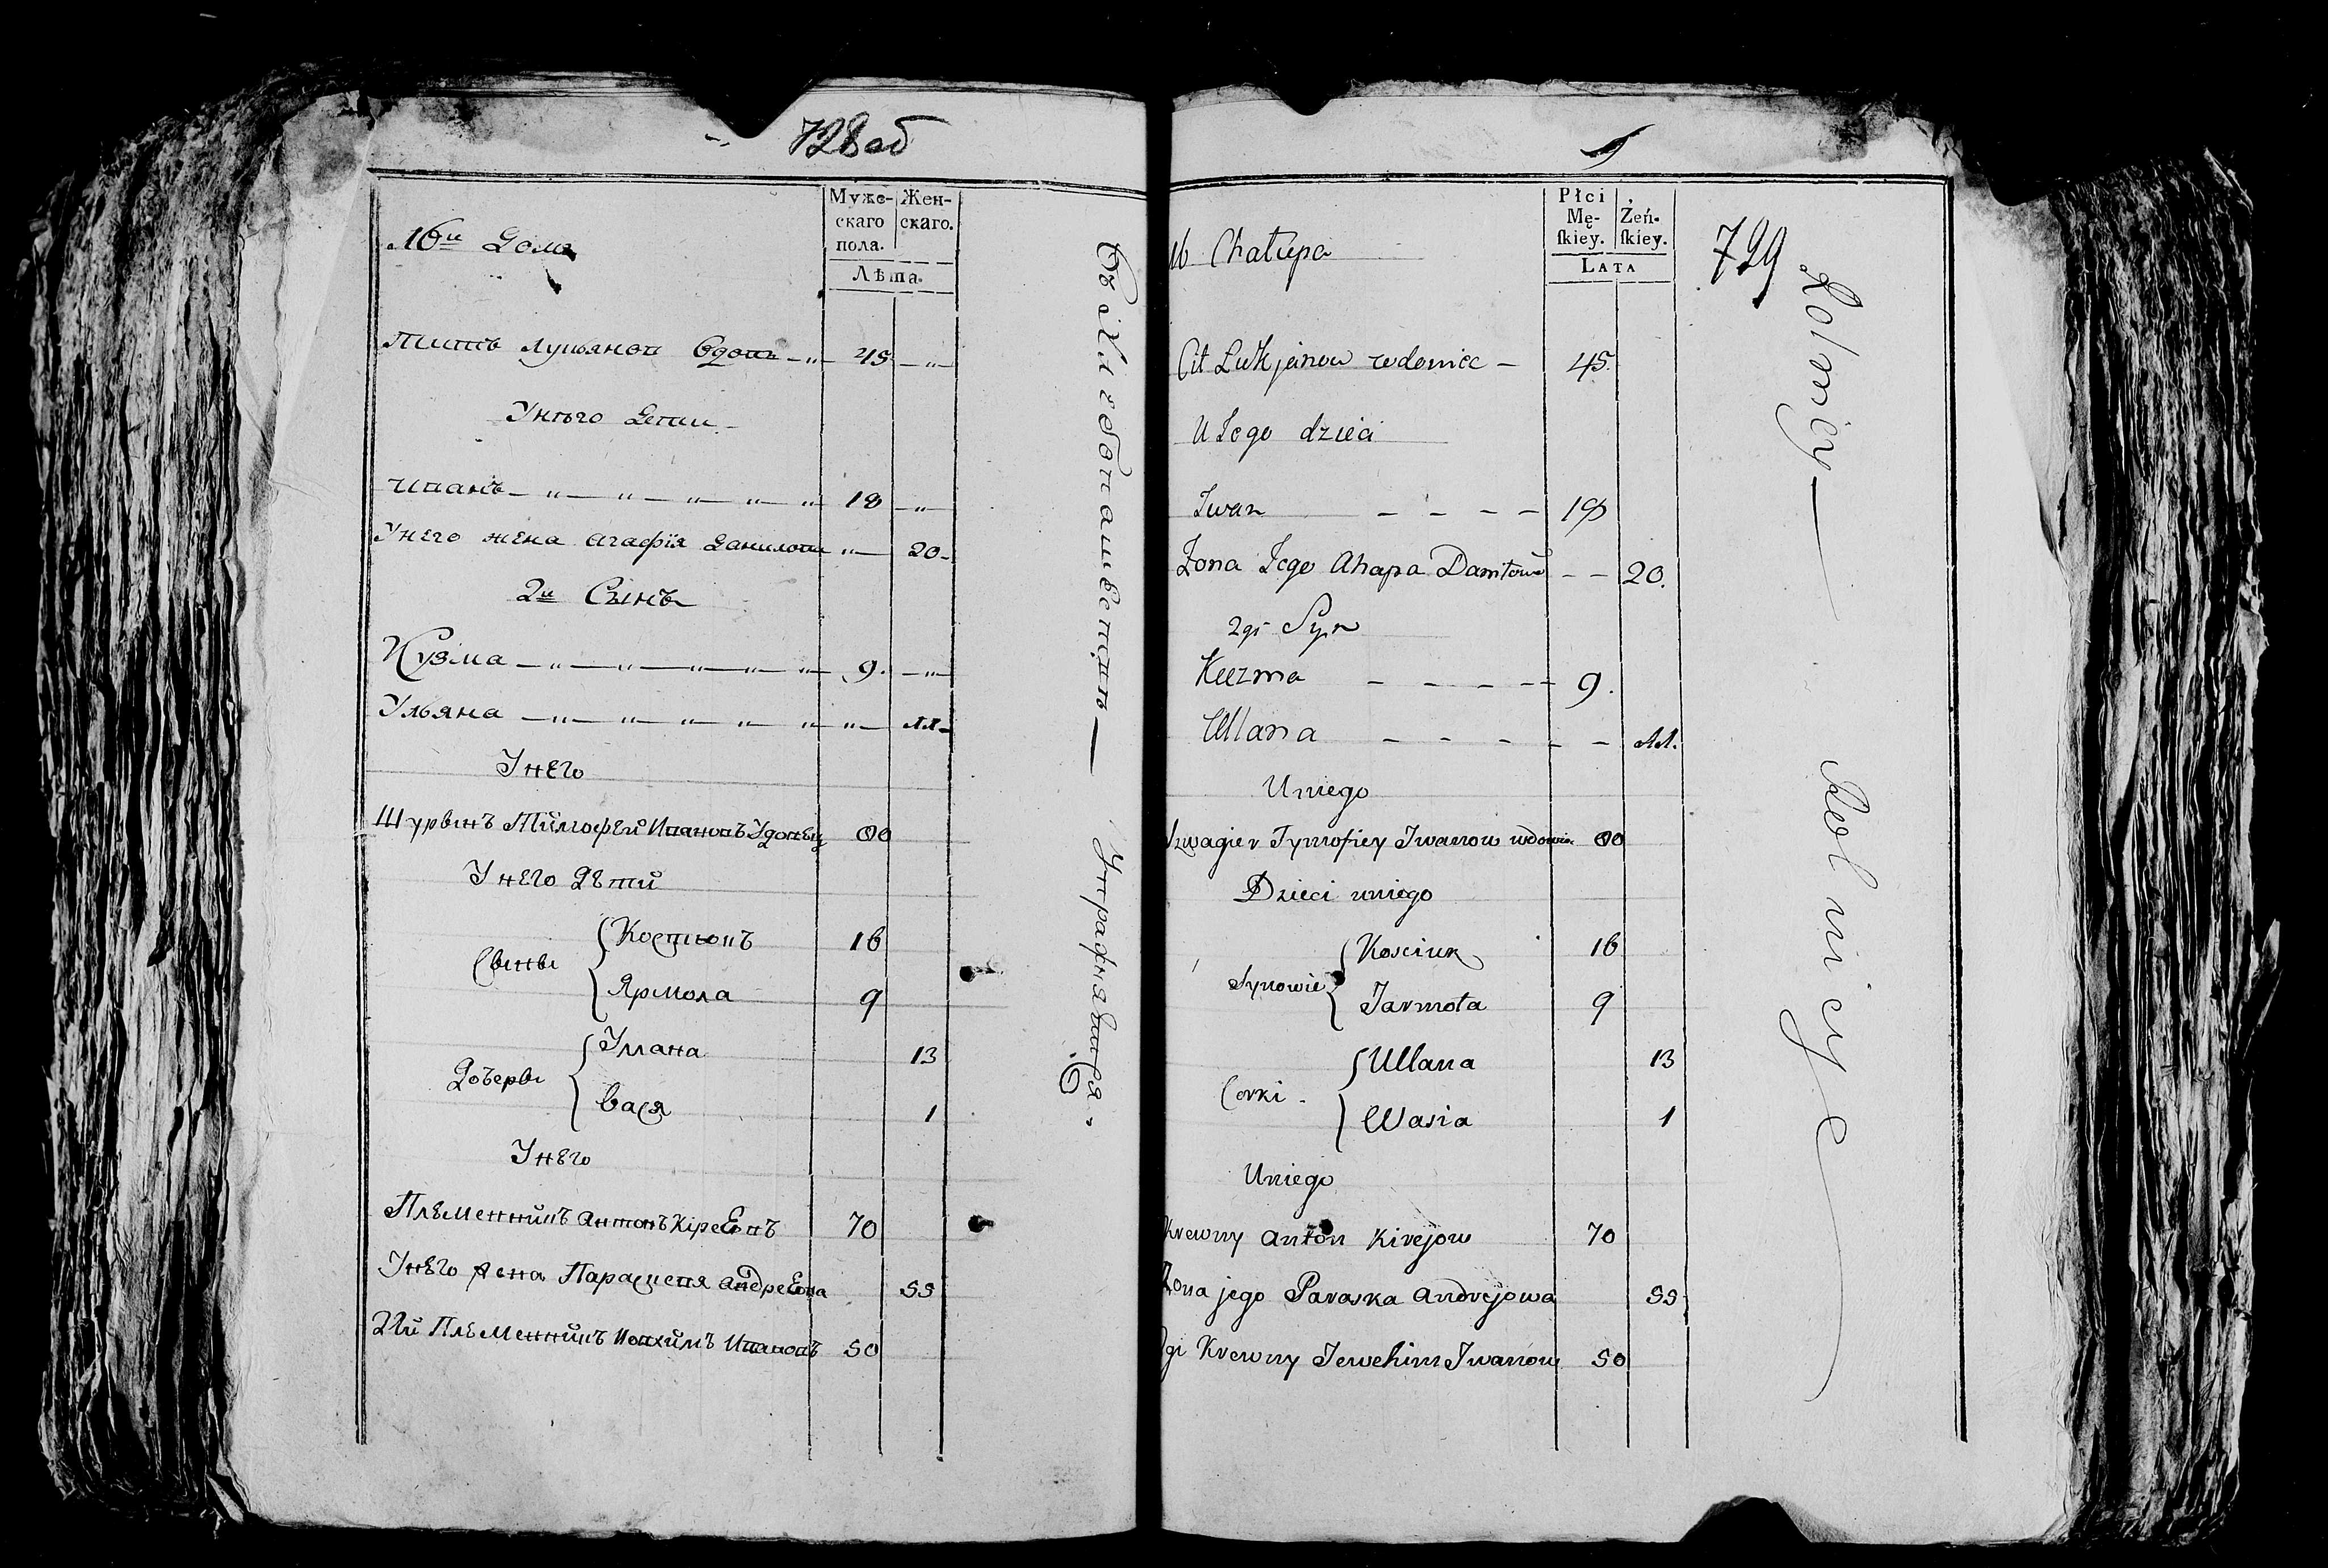 728 об
Муже-
скаго
пола.
Жен-
скаго.
Лѣта.
16й Домъ
Титъ Лукьяновъ Вдовъ 45
У него Дети
Иванъ 18
У него жена Агафія Данилова 20
2й Сынъ
Кузма 9
Ульяна 11
У него
Шуринъ Тимофей Ивановъ Удовец 60
У него Дѣти
Сыны
Костюкъ 16
Ярмола 9
Дочеры
Улана 13
Вася 1
У него
Племенникъ Антонъ Кіреевъ 70
У него жена Параскевя Андреевна 55
2й Племенникъ Иовхимъ Ивановъ 50
въ Хлебопашествѣ — Упражняются.
9
729
Płci
Mę-
ſkiey.
Żeń-
ſkiey.
LATA
16 Chałupa
Cit Lukjanow wdowiec 45.
U Jego dzieci
Iwan 18
Żona Jego Ahapa Daniłowa 20.
2gi Syn
Kuzma 9.
Ullana 11.
U niego
Szwagier Tymofiey Iwanow wdowiec 60
Dzieci u niego
Synowie
Kosciuk 16
Jarmoła 9
Corki
Ullana 13
Wasia 1
U niego
Krewny Anton Kirejow 70
Żona jego Paraska Andrejowa 55
2gi Krewny Jewchim Iwanow 50
Rolnicy —
Rolnicy